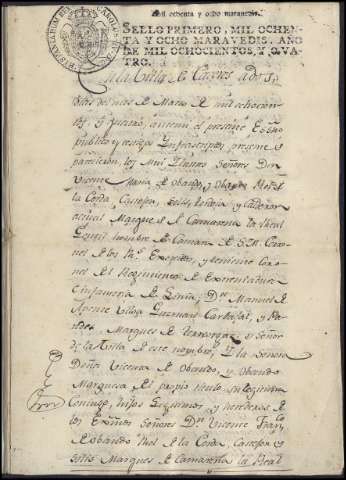 Mil ochenta y ocho maravedis.
SELLO PRIMERO, MIL OCHEN-
TA Y OCHO MARAVEDIS, AÑO
DE MIL OCHOCIENTOS, Y QUA-
TRO.
En la Villa de Cazeres a dos
dias del mes de Marzo de mil ochocien
tos y quatro, ante mi el presente Essno
publico y testigos Infrascriptos, presente
parecieron, los mui Ilustres Señores Dn
Vicente Maria de Obando, y Obando
la Cerda, Castejon, Solis, y Calderon
actual Marques de Camarena la Real
Gentil hombre de Camara de S.M. Coro
nel de los Rs. Exercitos, y teniente coro
nel del Regimiento de Extremadura
Infanteria de Linea; Dn Manuel de
Aponte Ulloa Guzman Carbajal, y Pa
redes, Marques de Torreorgaz, Señor
de la Villa de este nombre, y la Señora
Doña Vicenta de Obando, y Obando
Marquesa del propio titulo su legitima
Conjuge, hijos legitimos, y herederos de
los Exmos Señores Dn Vicente Franco
de Obando de la Cerda, Castejon y
Solis Marques de Camarena la Real